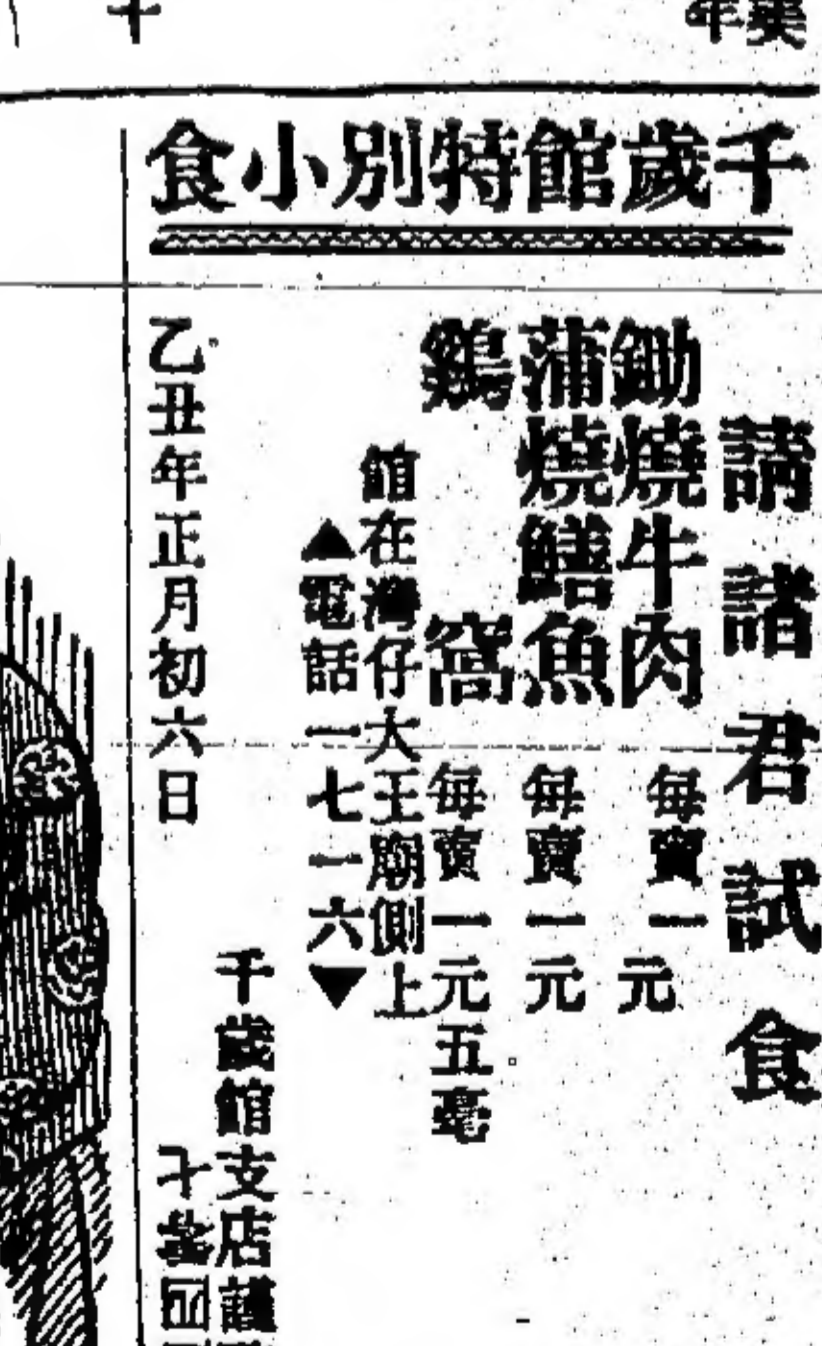 千歲館特別小食
請諸君試食
鋤燒牛肉 每賣一元
蒲燒鱔魚 每賣一元
鷄窩 每賣一元五毫
館在灣仔大王廟側上
▲電話一七一六▼
千歲館支店謹
乙丑年正月初六日